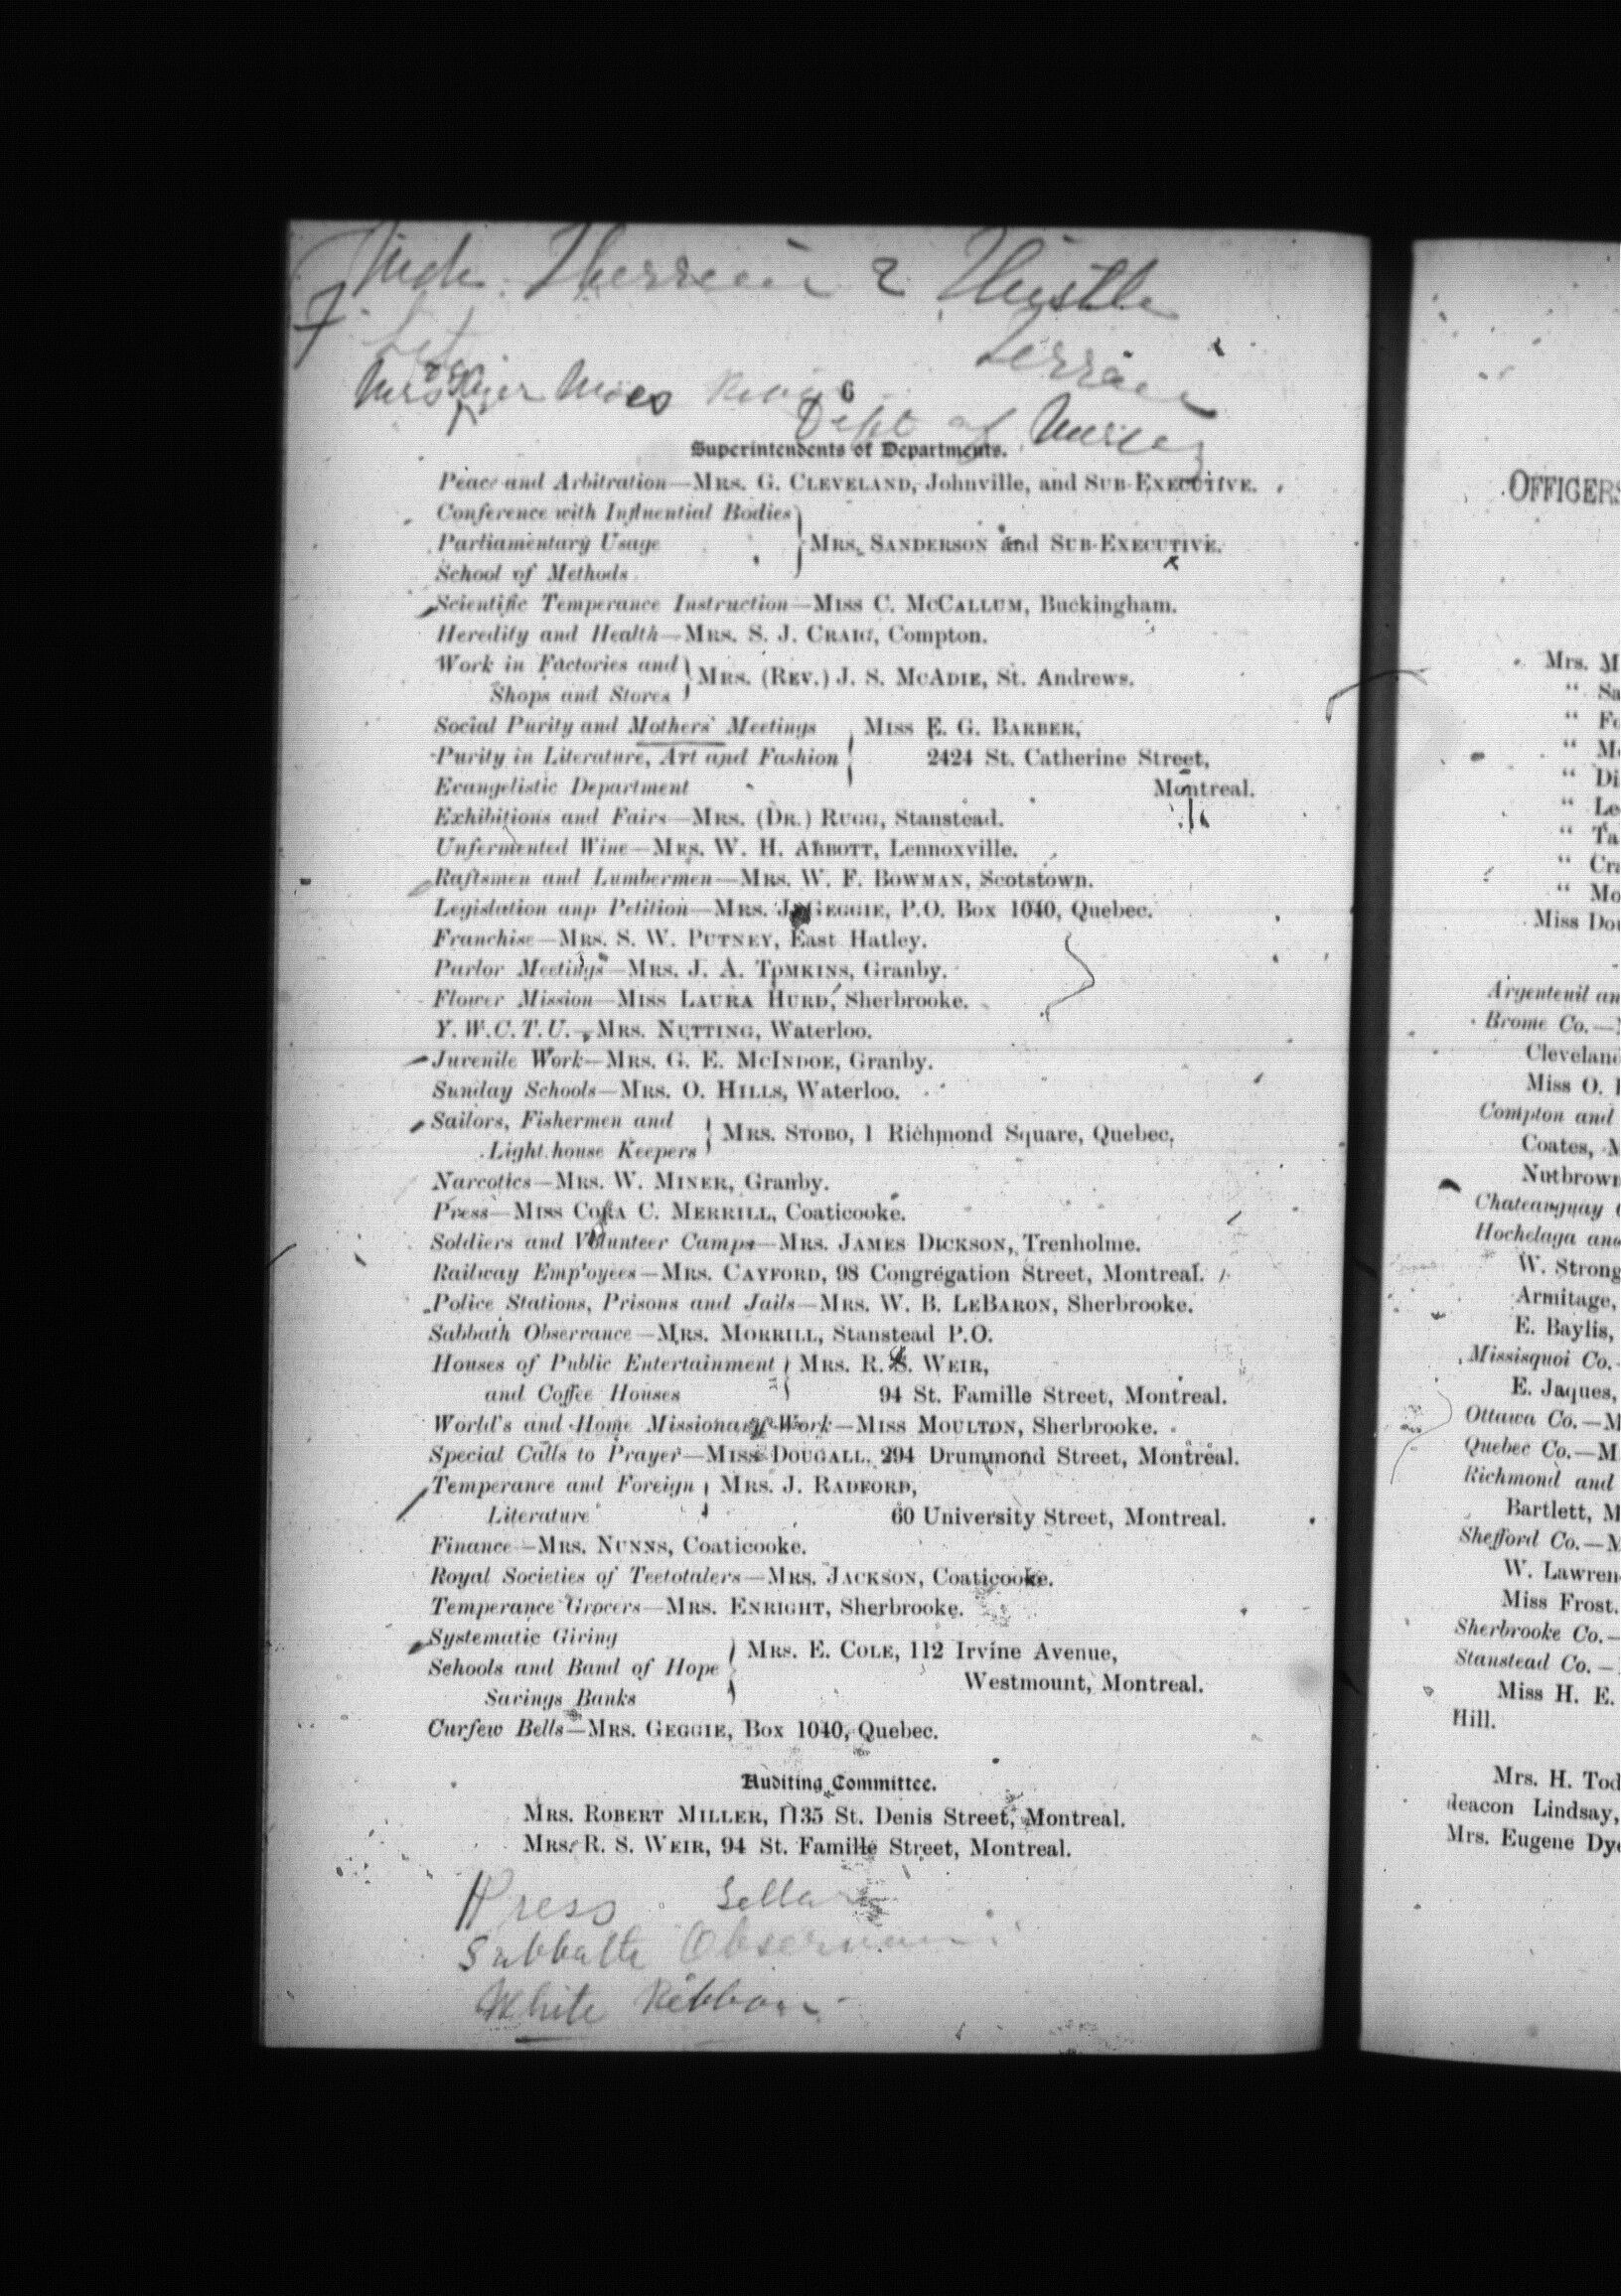 6
Dept of Mercy
Superintendents of Departments.
Peace and Arbitration—MRS. G. CLEVELAND, Johnville, and SUB-EXECUTIVE.
Conference with Influential Bodies
Parliamentary Usage
School of Methods
MRS. SANDERSON and SUB-EXECUTIVE.
Scientific Temperance Instruction—MISS C. MCCALLUM, Buckingham.
Heredity and Health—MRS. S. J. CRAIG, Compton.
Work in Factories and
Shops and Stores
MRS. (REV.) J. S. MCADIE, St. Andrews.
Social Purity and Mothers' Meetings
Purity in Literature, Art and Fashion
Evangelistic Department
MISS E. G. BARBER,
2424 St. Catherine Street,
Montreal.
Exhibitions and Fairs—MRS. (DR.) RUGG, Stanstead.
Unfermented Wine—MRS. W. H. ABBOTT, Lennoxville.
Raftsmen and Lumbermen—MRS. W. F. BOWMAN, Scotstown.
Legislation anp Petition—MRS. J. GEGGIE, P.O. Box 1040, Quebec.
Franchise—MRS. S. W. PUTNEY, East Hatley.
Parlor Meetings—MRS. J. A. TOMKINS, Granby.
Flower Mission—MISS LAURA HURD, Sherbrooke.
Y. W.C.T.U.—MRS. NUTTING, Waterloo.
Juvenile Work—MRS. G. E. MCINDOE, Granby.
Sunday Schools—MRS. O. HILLS, Waterloo.
Sailors, Fishermen and
Light house Keepers
MRS. STOBO, 1 Richmond Square, Quebec,
Narcotics—MRS. W. MINER, Granby.
Press—MISS CORA C. MERRILL, Coaticooke.
Soldiers and Volunteer Camps—MRS. JAMES DICKSON, Trenholme.
Railway Emp'oyees—MRS. CAYFORD, 98 Congregation Street, Montreal.
Police Stations, Prisons and Jails—MRS. W. B. LEBARON, Sherbrooke.
Sabbath Observance—MRS. MORRILL, Stanstead P.O.
Houses of Public Entertainment
and Coffee Houses
MRS. R. S. WEIR,
94 St. Famille Street, Montreal.
World's and Home Missionary Work—MISS MOULTON, Sherbrooke.
Special Calls to Prayer—MISS DOUGALL, 294 Drummond Street, Montreal.
Temperance and Foreign
Literature
MRS. J. RADFORD,
60 University Street, Montreal.
Finance—MRS. NUNNS, Coaticooke.
Royal Societies of Teetotalers—MRS. JACKSON, Coaticooke.
Temperance Grocers—MRS. ENRIGHT, Sherbrooke.
Systematic Giving
Schools and Band of Hope
Savings Banks
MRS. E. COLE, 112 Irvine Avenue,
Westmount, Montreal.
Curfew Bells—MRS. GEGGIE, Box 1040, Quebec.
Auditing Committee.
MRS. ROBERT MILLER, 1135 St. Denis Street, Montreal.
MRS. R. S. WEIR, 94 St. Famille Street, Montreal.
Press
Sabbath
White Ribbon
OFFICERS
Mrs. M
" Sa
" Fo
" M
" Di
" Le
" Ta
" Cra
" Mo
Miss Dou
Argenteuil an
Brome Co.—
Cleveland
Miss O.
Compton and
Coates, M
Nutbrown
Chateauguay
Hochelaga and
W. Strong
Armitage,
E. Baylis,
Missisquoi Co.
E. Jaques,
Ottawa Co.—M
Quebec Co.—M
Richmond and
Bartlett, M
Shefford Co.—M
W. Lawren
Miss Frost.
Sherbrooke Co.—
Stanstead Co.—
Miss H. E.
Hill.
Mrs. H. Tod
deacon Lindsay,
Mrs. Eugene Dy